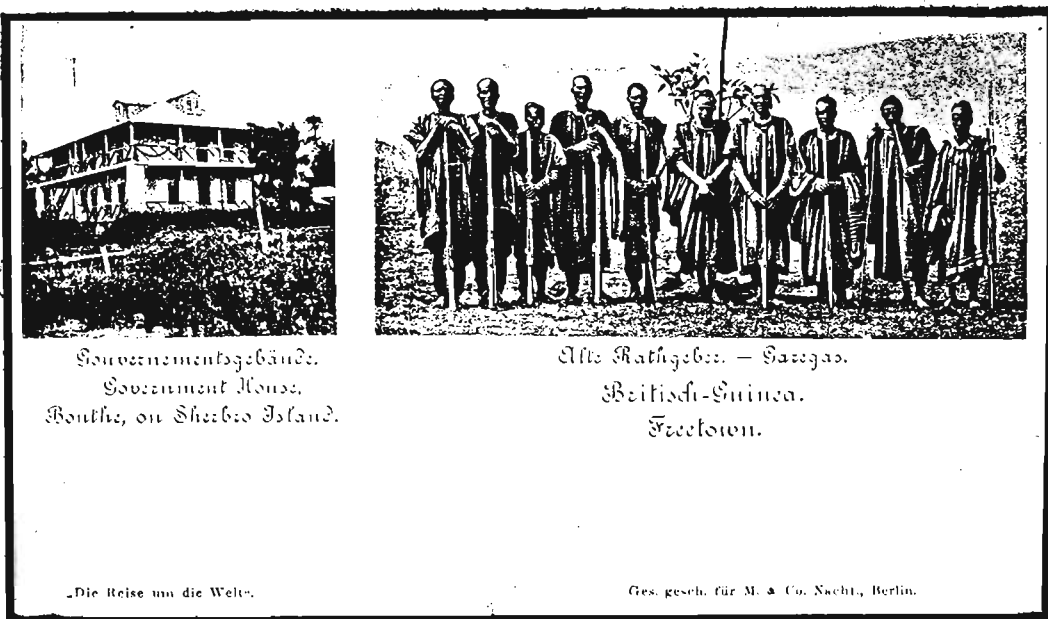 Gouvernementsgebäude.
Government House,
Bonthe, on Sherbro Island.
Alte Rathgeber. — Garegas.
Britisch-Guinea.
Freetown.
„Die Reise um die Welt“.
Ges. gesch. für M. & Co. Nachf., Berlin.